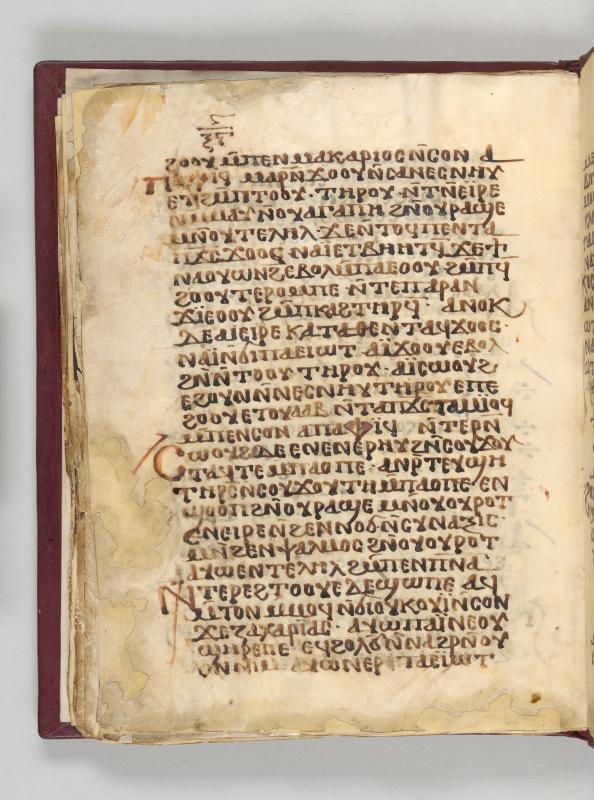 ϩⲟⲟⲩ ⲙ̅ⲡⲉⲛⲙⲁⲕⲁⲣⲓⲟⲥ ⲛ̅ⲥⲟⲛ ⲁ
ⲙⲁⲣⲛ̅ϫⲟⲟⲩ ⲛ̅ⲥⲁ ⲛⲉⲥⲛⲏⲩ
ⲉⲧϩⲙ̅ⲡⲧⲟⲟⲩ ⲧⲏⲣⲟⲩ· ⲛ̅ⲧⲛ̅ⲉⲓⲣⲉ
ⲙ̅ⲙⲁⲩ ⲛ̅ⲟⲩⲁⲅⲁⲡⲏ ϩⲛ̅ⲟⲩⲣⲁϣⲉ
ⲙⲛ̅ⲟⲩⲧⲉⲗⲏⲗ· ϫⲉⲛⲧⲟϥ ⲡⲉⲛⲧⲁ
ⲡϫⲥ ϫⲟⲟⲥ ⲛⲁⲓ ⲉⲧⲃⲏⲏⲧϥ ϫⲉϯ
ⲛⲁⲟⲩⲱⲛϩ ⲉⲃⲟⲗ ⲙ̅ⲡⲁⲉⲟⲟⲩ· ϩⲙ̅ⲡϥ
ϩⲟⲟⲩ ⲛ̅ⲧⲉⲡⲁⲣⲁⲛ
ϫⲓⲉⲟⲟⲩ ϩⲙ̅ⲡⲕⲁϩ ⲧⲏⲣϥ· ⲁⲛⲟⲕ
ⲇⲉ ⲁⲓⲉⲓⲣⲉ ⲕⲁⲧⲁ ⲑⲉ ⲛⲧⲁϥϫⲟⲟⲥ·
ⲛⲁⲓ ⲛϭⲓ ⲡⲁⲉⲓⲱⲧ ⲁⲓϫⲟⲟⲩ ⲉⲃⲟⲗ
ϩⲛ̅ⲛ̅ⲧⲟⲟⲩ ⲧⲏⲣⲟⲩ· ⲁⲓⲥⲱⲟⲩϩ
ⲉϩⲟⲩⲛ ⲛ̅ⲛⲉⲥⲛⲏⲩ ⲧⲏⲣⲟⲩ ⲉⲡⲉ
ϩⲟⲟⲩ ⲉⲧⲟⲩⲁⲁⲃ ⲛ̅ⲧⲁⲡϫⲥ ⲧⲁⲙⲓⲟϥ
ⲙ̅ⲡⲉⲛⲥⲟⲛ ⲁⲡⲁ ⲛ̅ⲧⲉⲣⲛ
ⲥⲱⲟⲩϩ ⲇⲉ ⲉⲛⲉⲛⲉⲣⲏⲩ ϩⲛ̅ⲥⲟⲩϫⲟⲩ
ⲧⲁϥⲧⲉ ⲙ̅ⲡⲁⲟⲡⲉ· ⲁⲛⲣ̅ⲧⲉⲩϣⲏ
ⲧⲏⲣⲥ̅ ⲛⲥⲟⲩϫⲟⲩⲧⲏ ⲙ̅ⲡⲁⲟⲡⲉ· ⲉⲛ
ϣⲟⲟⲡ ϩⲛ̅ⲟⲩⲣⲁϣⲉ ⲙⲛ̅ⲟⲩⲟⲩⲣⲟⲧ
ⲉⲛⲉⲓⲣⲉ ⲛ̅ϩⲉⲛⲛⲟϭ ⲛ̅ⲥⲩⲛⲁⲝⲓⲥ·
ⲙⲛ̅ϩⲉⲛⲯⲁⲗⲙⲟⲥ ϩⲛ̅ⲟⲩⲟⲩⲣⲟⲧ
ⲁⲩⲱ ⲉⲛⲧⲉⲗⲏⲗ ϩⲙ̅ⲡⲉⲡⲛ̅ⲁ̅·
ⲛ̅ⲧⲉⲣⲉϩⲧⲟⲟⲩⲉ ⲇⲉ ϣⲱⲡⲉ ⲁϥ
ⲙ̅ⲧⲟⲛ ⲙ̅ⲙⲟϥ ⲛ̅ϭⲓⲟⲩⲕⲟⲩⲓ ⲛ̅ⲥⲟⲛ
ϫⲉ ⲍⲁⲭⲁⲣⲓⲁⲥ· ⲁⲩⲱ ⲡⲁⲓ ⲛⲉⲟⲩ
ϣⲏⲣⲉ ⲡⲉ ⲉϥϩⲟⲗϭ ⲛ̅ⲛⲁϩⲣⲛ̅ⲟⲩ
ⲟⲛ ⲛⲓⲙ ⲁⲩⲱ ⲛⲉⲣⲉⲡⲁⲉⲓⲱⲧ